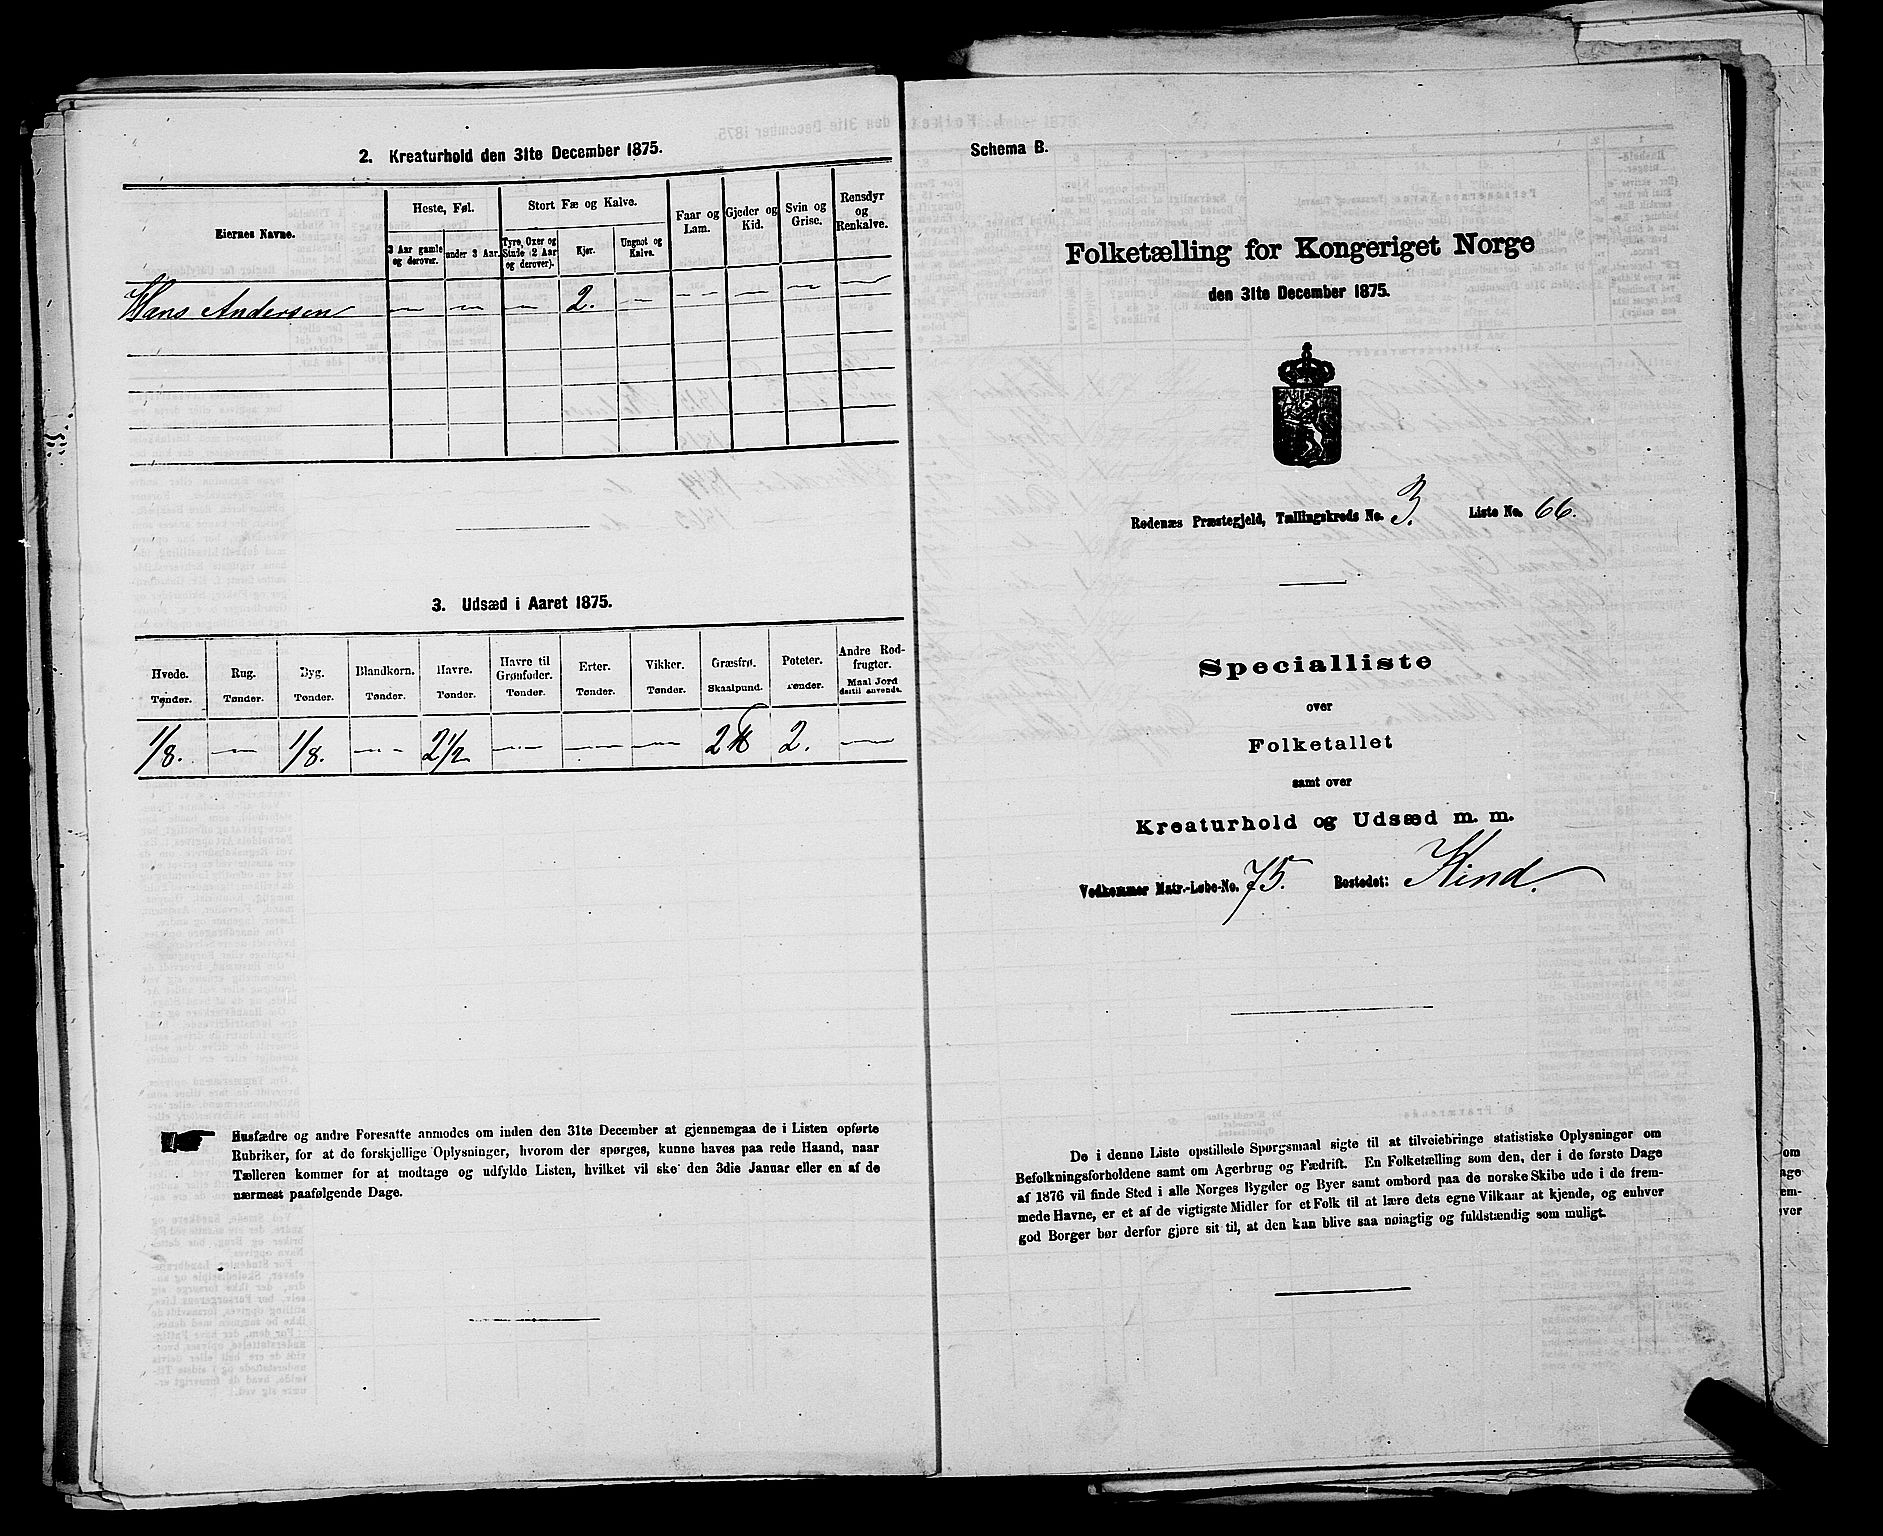 2. Kreaturhold den 31te December 1875.
Eiernes Navne.
Heste, Føl.
Stort Fæ og Kalve.
Faar og Lam.
Gjeder og Kid.
Svin og Grise.
Rensdyr og Renkalve.
3 Aar gamle og derover.
under 3 Aar.
Tyre, Oxer og Stude (2 Aar og derover).
Kjør.
Ungnot og Kalve.
Hans Andersen — — — 2. — — — — —
3. Udsæd i Aaret 1875.
Hvede. Rug. Byg. Blandkorn. Havre. Havre til Grønfoder. Erter. Vikker. Græsfrø. Poteter. Andre Rodfrugter.
Tønder. Tønder. Tønder. Tønder. Tønder. Tønder. Tønder. Tønder. Skaalpund. Tønder. Maal Jord dertil anvendt.
1/8. — 1/8. — 2 1/2 — — — 2 ℔ 2. —
Husfædre og andre Foresatte anmodes om inden den 31te December at gjennemgaa de i Listen opførte
Rubriker, for at de forskjellige Oplysninger, hvorom der spørges, kunne haves paa rede Haand, naar
Tælleren kommer for at modtage og udfylde Listen, hvilket vil ske den 3die Januar eller en af de
nærmest paafølgende Dage.
Schema B.
Folketælling for Kongeriget Norge
den 31te December 1875.
Rødenæs Præstegjeld, Tællingskreds No. 3. Liste No. 66.
Specialliste
over
Folketallet
samt over
Kreaturhold og Udsæd m. m.
Vedkommer Matr.-Løbe-No. 75. Bostedet: Kind.
De i denne Liste opstillede Spørgsmaal sigte til at tilveiebringe statistiske Oplysninger om
Befolkningsforholdene samt om Agerbrug og Fædrift. En Folketælling som den, der i de første Dage
af 1876 vil finde Sted i alle Norges Bygder og Byer samt ombord paa de norske Skibe ude i de frem-
mede Havne, er et af de vigtigste Midler for et Folk til at lære dets egne Vilkaar at kjende, og enhver
god Borger bør derfor gjøre sit til, at den kan blive saa nøiagtig og fuldstændig som muligt.